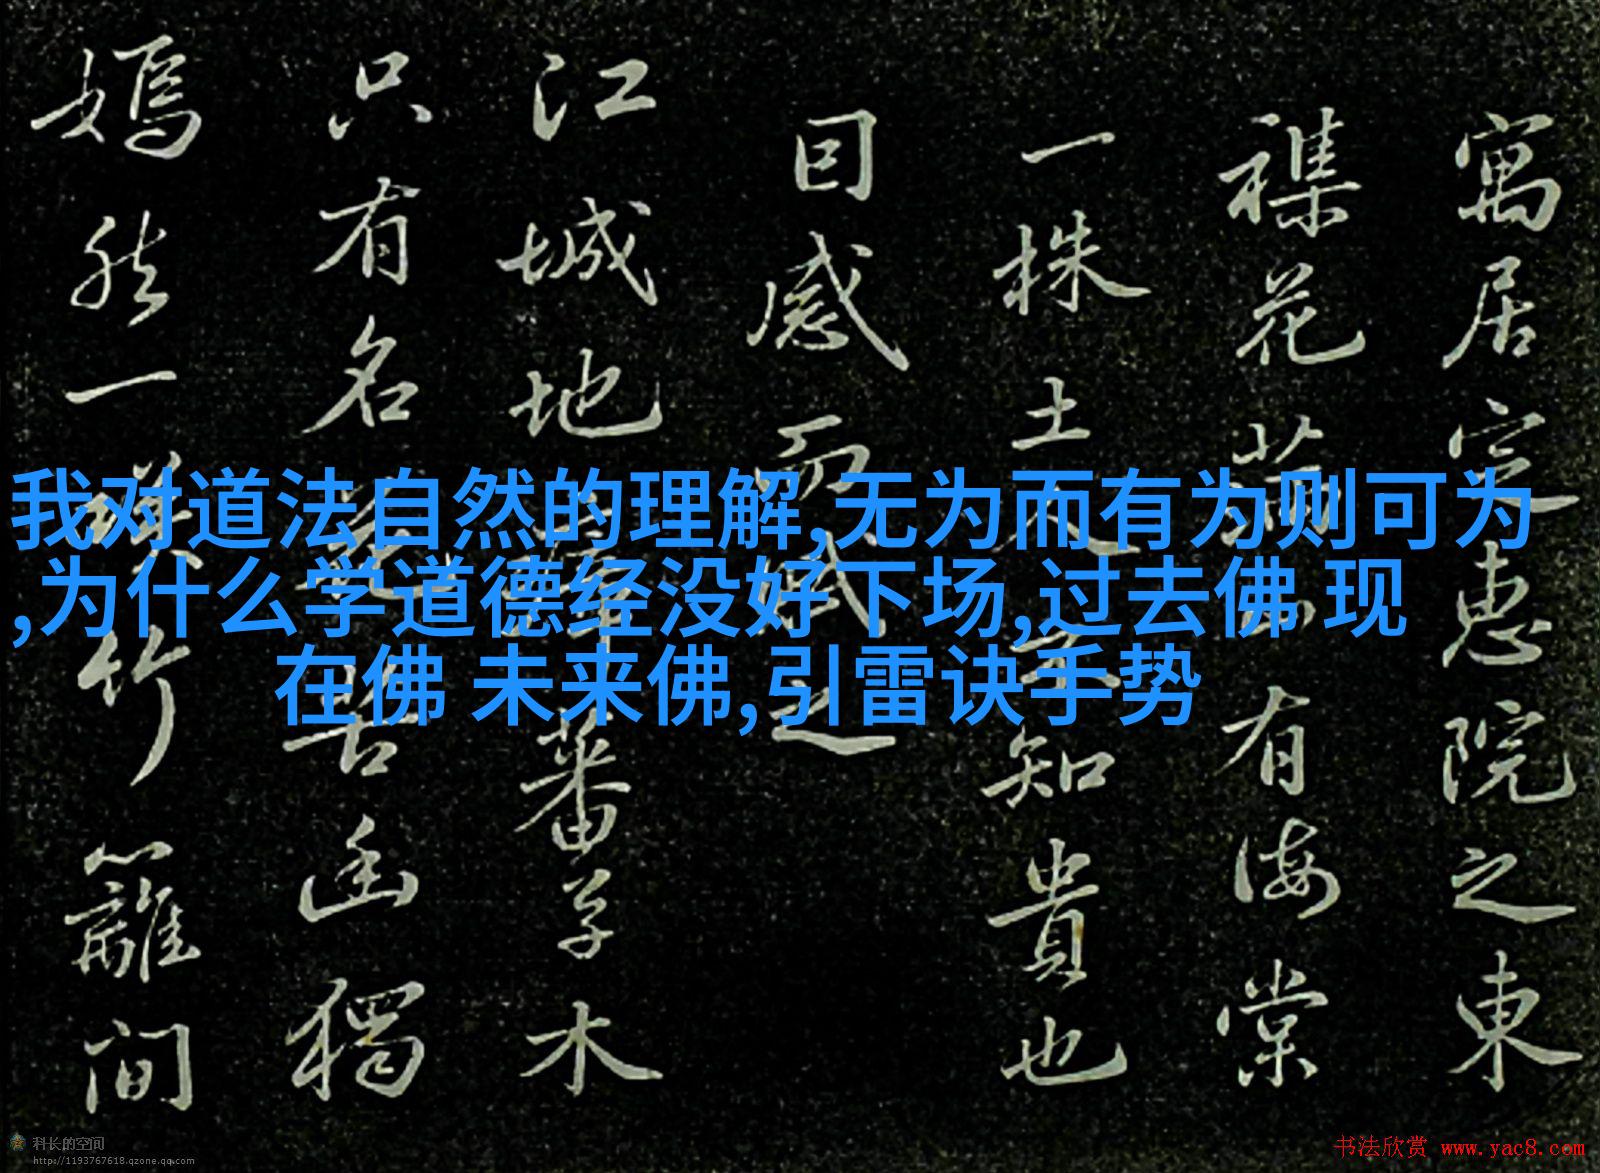 寓居定惠院之東
襍花滿山有海棠
一株土人不知貴也
囙感而賦之
江城地瘴蕃草木
只有名花苦幽獨
嫣然一笑竹籬間
我对道法自然的理解,无为而有为则可为
,为什么学道德经没好下场,过去佛 现
在佛 未来佛,引雷诀手势
科长的空间
http://1193767618.qzone.qq.com
书法欣赏 www.yac8.com